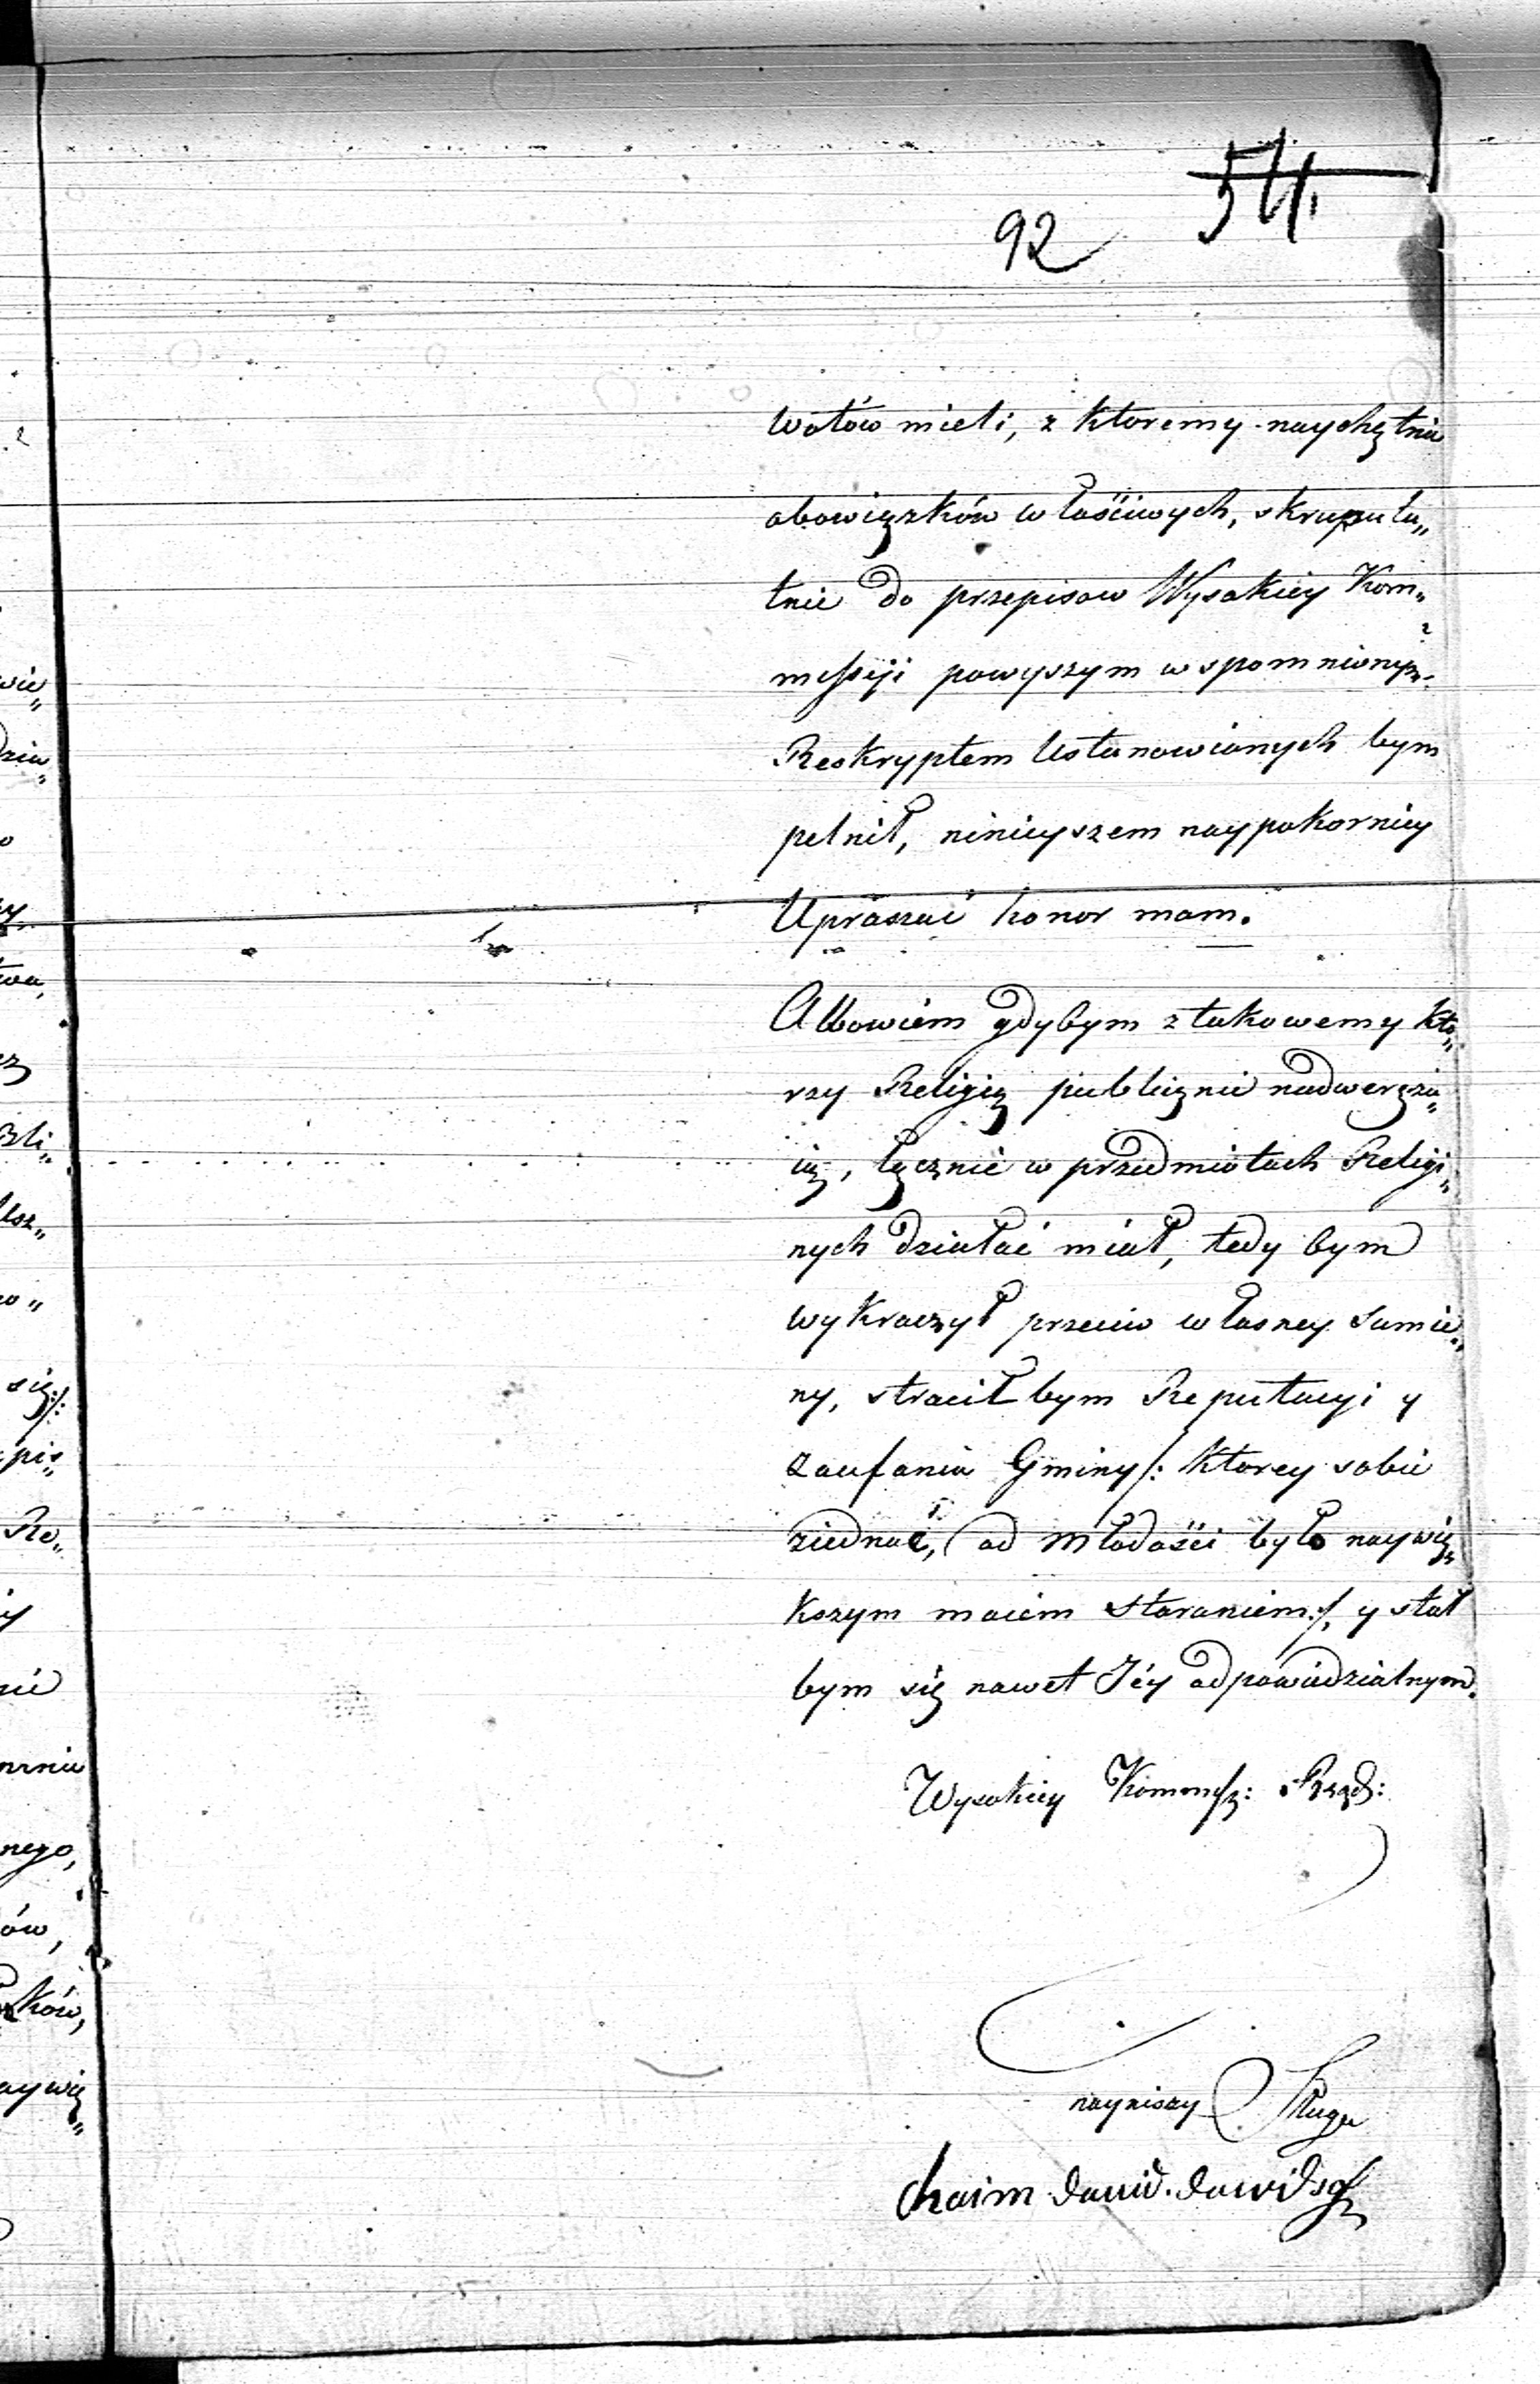 54.
92
wotów mieli, z ktoremy naychętnie
obowiązków właściwych, skrupula„
tnie do przepisow Wysokiey Kom„
messyi powyszym wspomnionym
Reskryptem Ustanowionych bym
pelnił, ninieyszem naypokorniey
Upraszać honor mam.
Albowiem gdybym z takowemy kto„
rzy Religią publicznie nadweręża„
ią, łącznie w przedmiotach Religi„
nych działać miał, tedy bym
wykraczył przeciw własney Sumie„
ny, stracił bym Reputacyi y
Zaufania Gminy /: ktorey sobie
ziednać, od Młodości było naywię„
kszym moiem staraniem :/, y stał
bym się nawet Jéy odpowiedzialnym.
Wysokiey Kommss: Rząd:
nayniszy Sługa
chaim dawid dawidsohn
wie„
dzia„
o
twa,
Bli„
usz„
wo„
się :/:
pis„
Re„
nie
nego,
ów,
ków,
aywię„